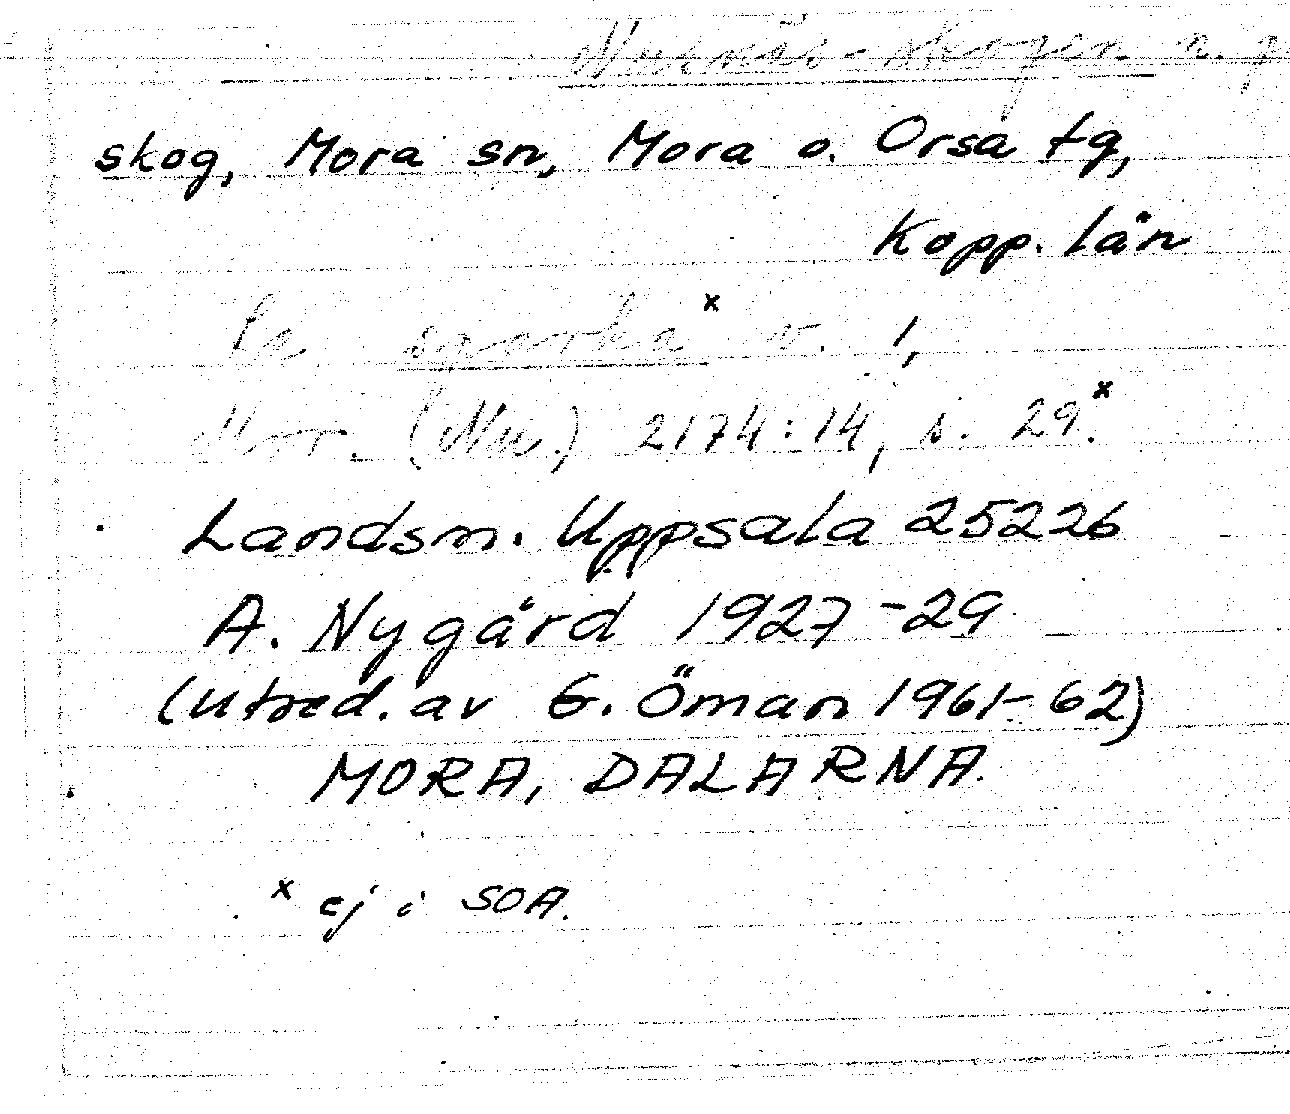 Nusnäs-skogen n.
skog, Mora sn, Mora o. Orsa tg,
Kopp. län
Se sparka x v. !,
Mor. (Nu.) 2174:14, s. 29. x
Landsm. Uppsala 25226
A. Nygård 1927-29
(utred. av G. Öman 1961-62)
MORA, DALARNA.
x ej i SOA.